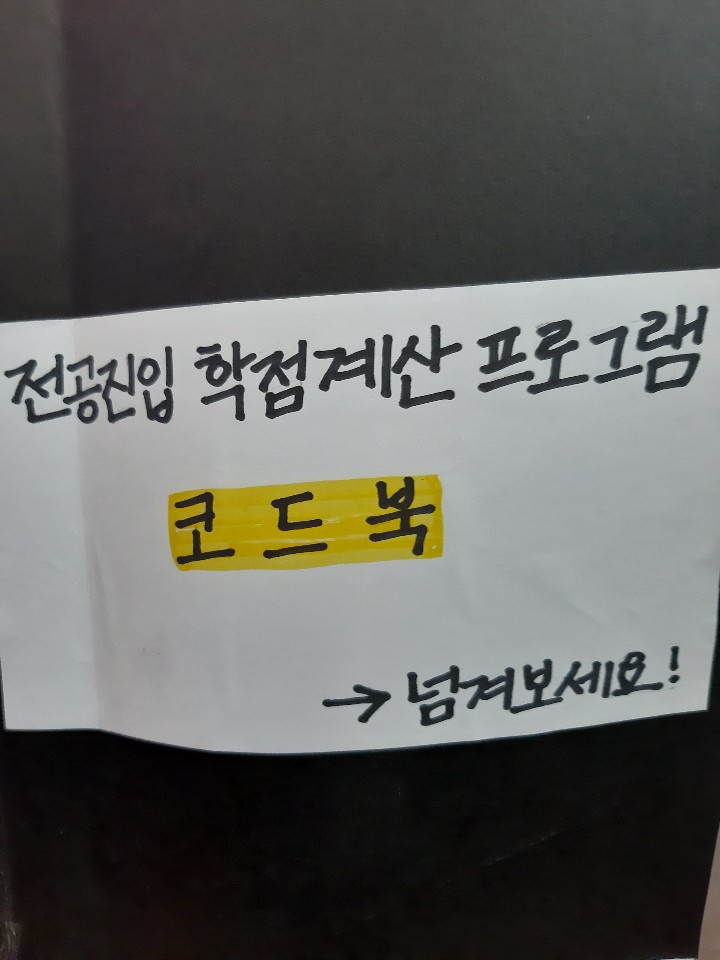 전공진입 학점계산 프로그램
코드북
→ 넘겨보세요!